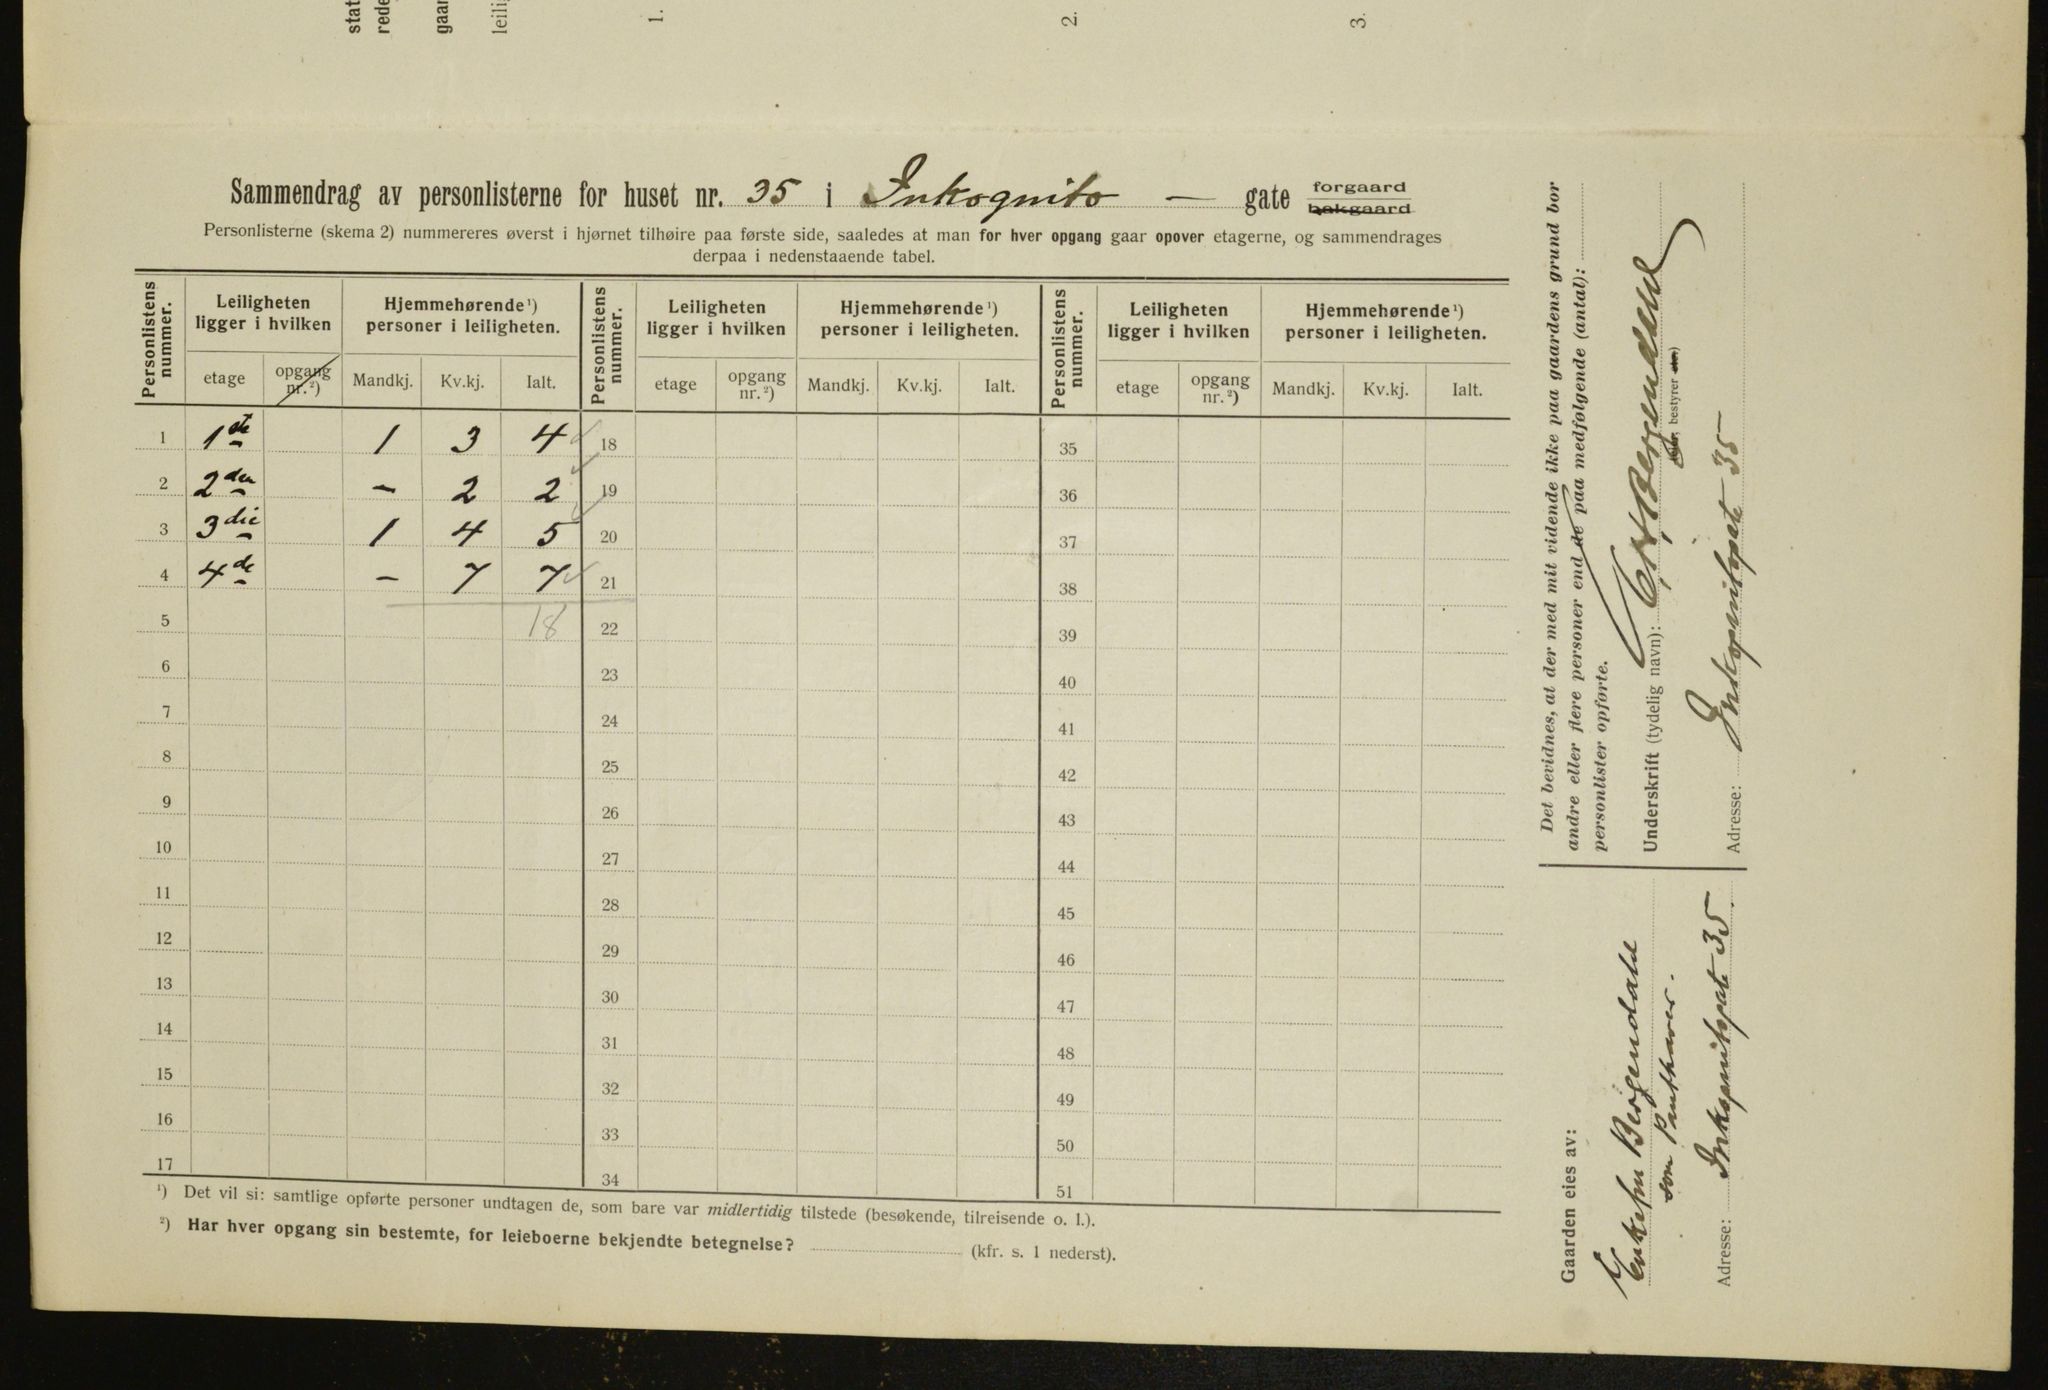 stat
rede
gaar
leilig
1.
2.
3.
Sammendrag av personlisterne for huset nr. 35 i Inkognito — gate forgaard
bakgaard
Personlisterne (skema 2) nummereres øverst i hjørnet tilhøire paa første side, saaledes at man for hver opgang gaar opover etagerne, og sammendrages
derpaa i nedenstaaende tabel.
Personlistens nummer. Leiligheten ligger i hvilken Hjemmehørende ¹) personer i leiligheten. Personlistens nummer. Leiligheten ligger i hvilken Hjemmehørende ¹) personer i leiligheten. Personlistens nummer. Leiligheten ligger i hvilken Hjemmehørende ¹) personer i leiligheten.
etage opgang nr. ²) Mandkj. Kv.kj. Ialt. etage opgang nr. ²) Mandkj. Kv.kj. Ialt. etage opgang nr. ²) Mandkj. Kv.kj. Ialt.
1 1ste 1 3 4 ✓ 18 35
2 2den — 2 2 ✓ 19 36
3 3die 1 4 5 ✓ 20 37
4 4de — 7 7 ✓ 21 38
5 18 22 39
6 23 40
7 24 41
8 25 42
9 26 43
10 27 44
11 28 45
12 29 46
13 30 47
14 31 48
15 32 49
16 33 50
17 34 51
¹) Det vil si: samtlige opførte personer undtagen de, som bare var midlertidig tilstede (besøkende, tilreisende o. l.).
²) Har hver opgang sin bestemte, for leieboerne bekjendte betegnelse? (kfr. s. 1 nederst).
Det bevidnes, at der med mit vidende ikke paa gaardens grund bor
andre eller flere personer end de paa medfølgende (antal):
personlister opførte.
Underskrift (tydelig navn): Bergendahl
(eier, bestyrer etc.)
Adresse: Inkognitogate 35
Gaarden eies av:
Enkefru Bergendahl
som Panthaver.
Adresse: Inkognitogate 35.